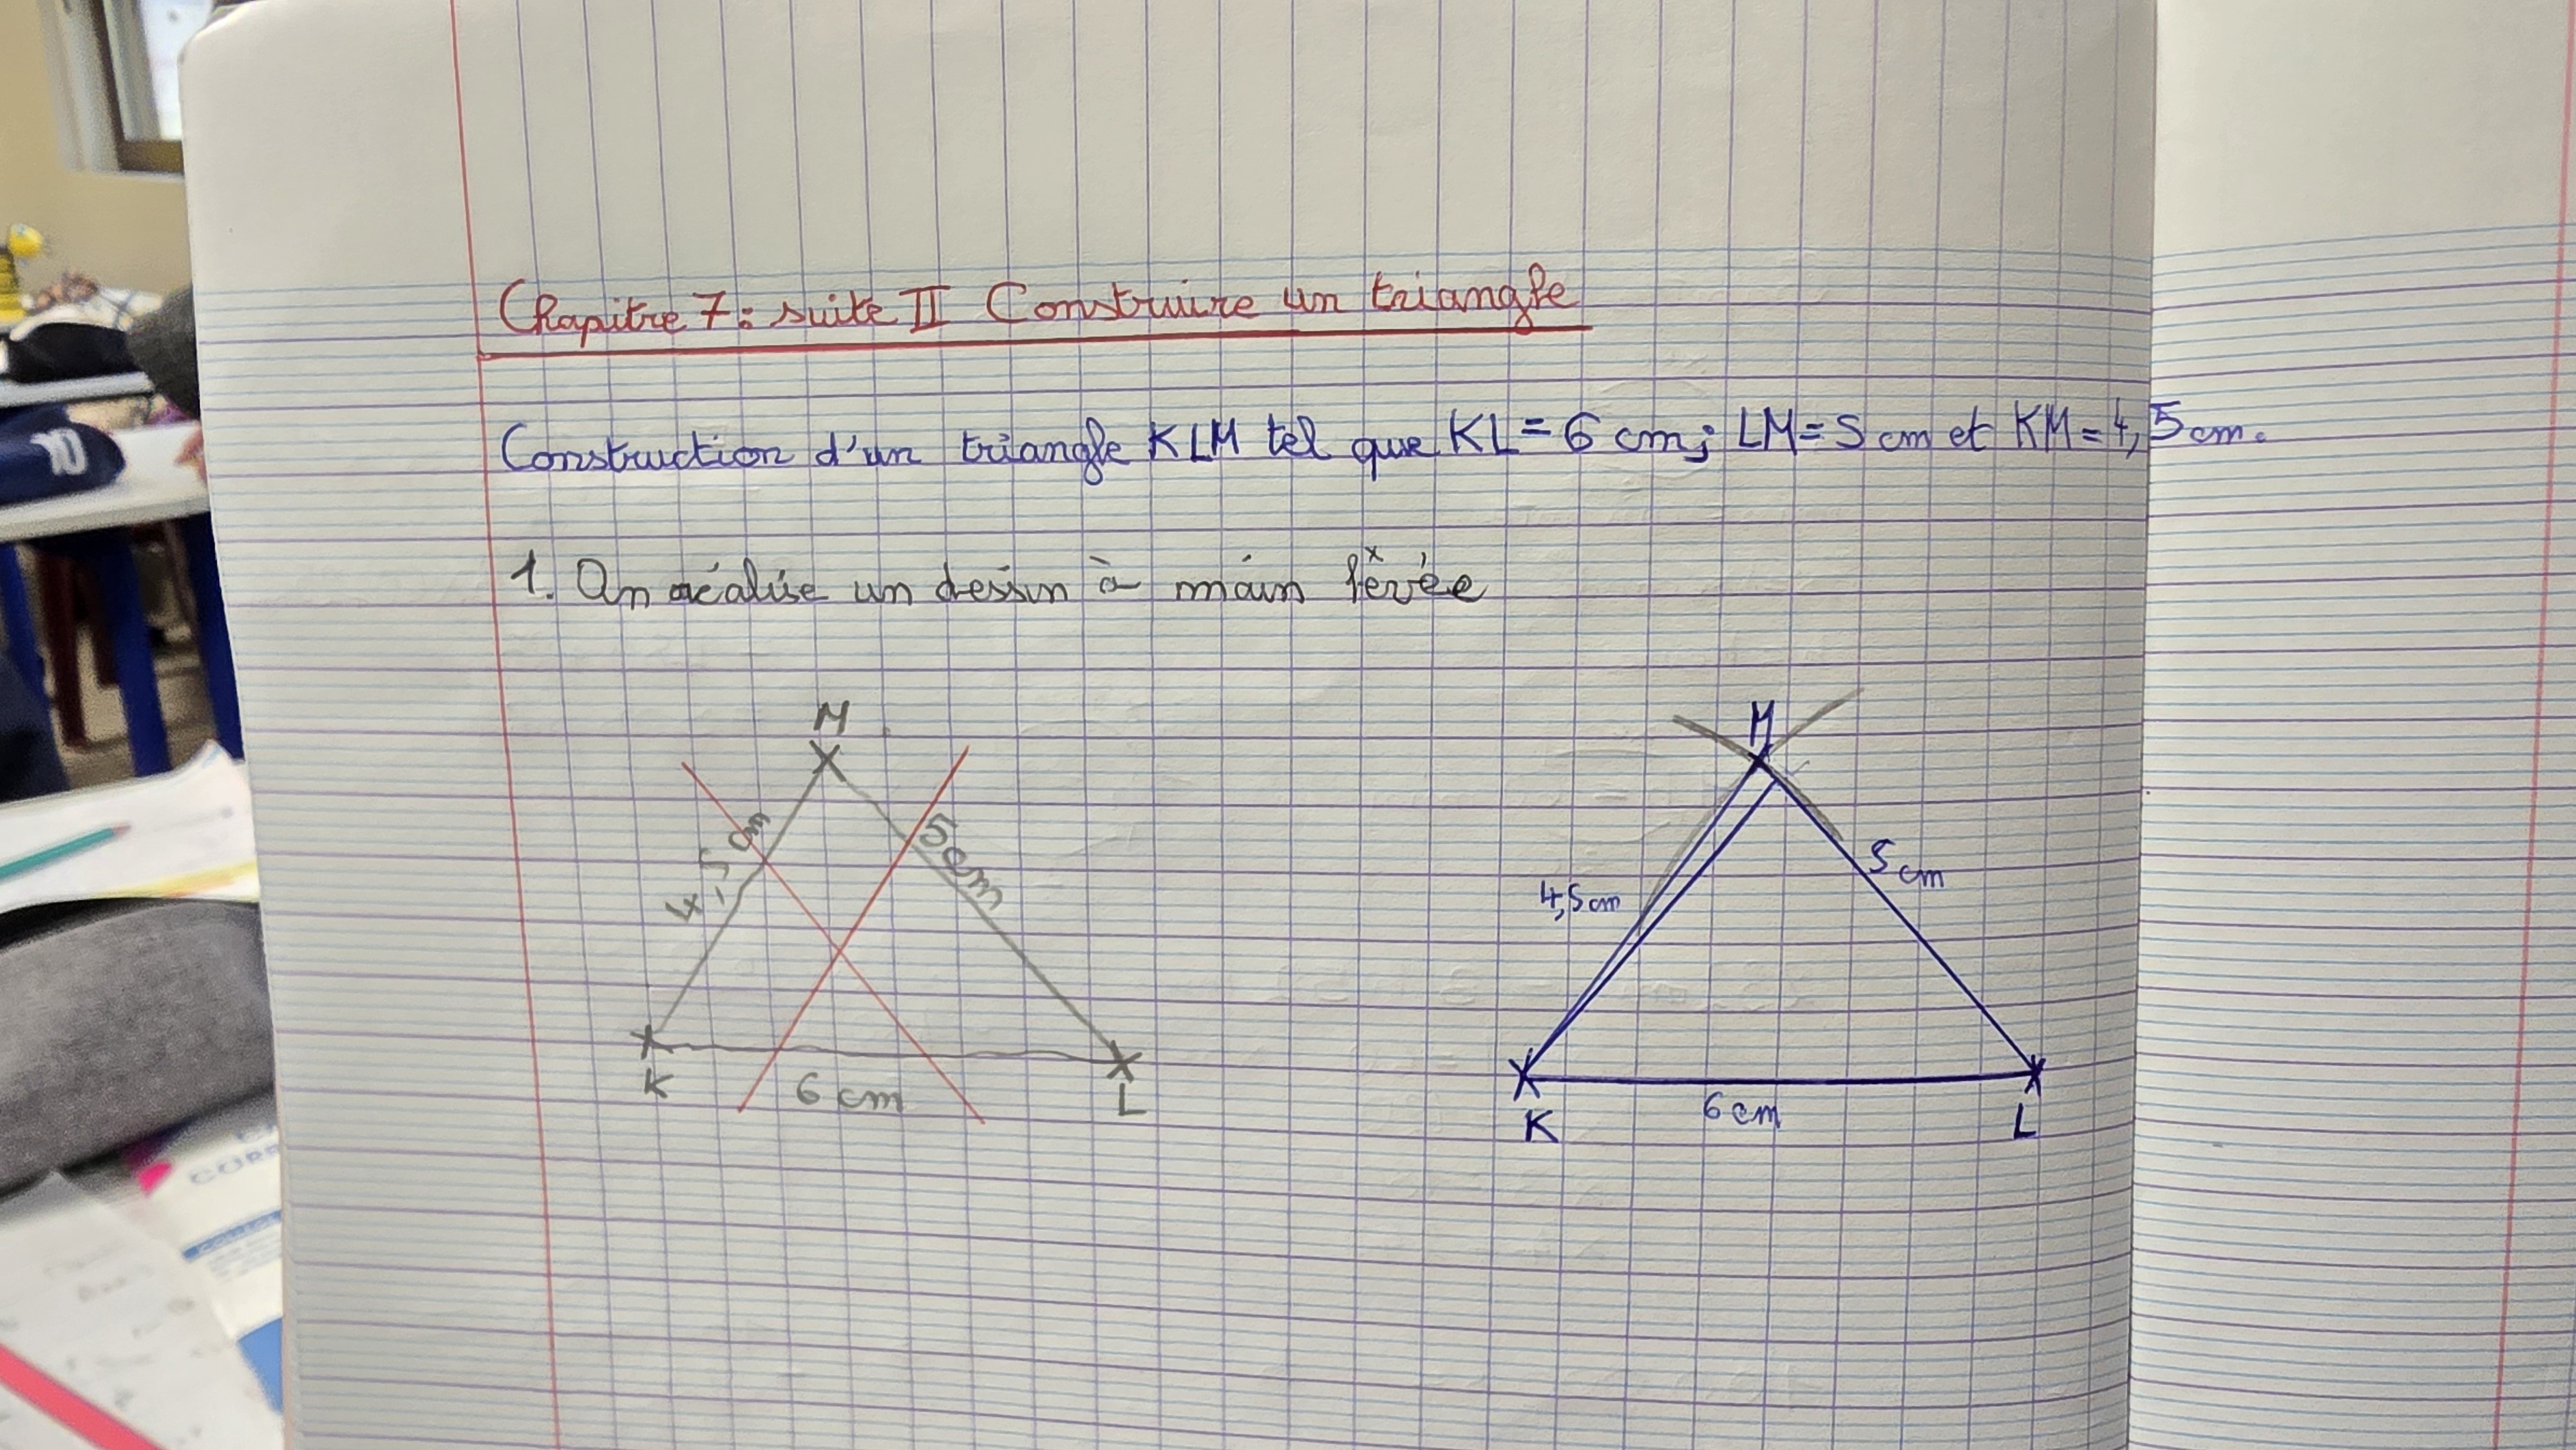 Chapitre 7: suite II Construire un triangle
Construction d'un triangle KLM tel que KL = 6 cm; LM = 5 cm et KM = 4,5 cm.
1. On réalise un dessin à main levée
M
4,5 cm
5 cm
K
6 cm
L
M
4,5 cm
5 cm
K
6 cm
L
10